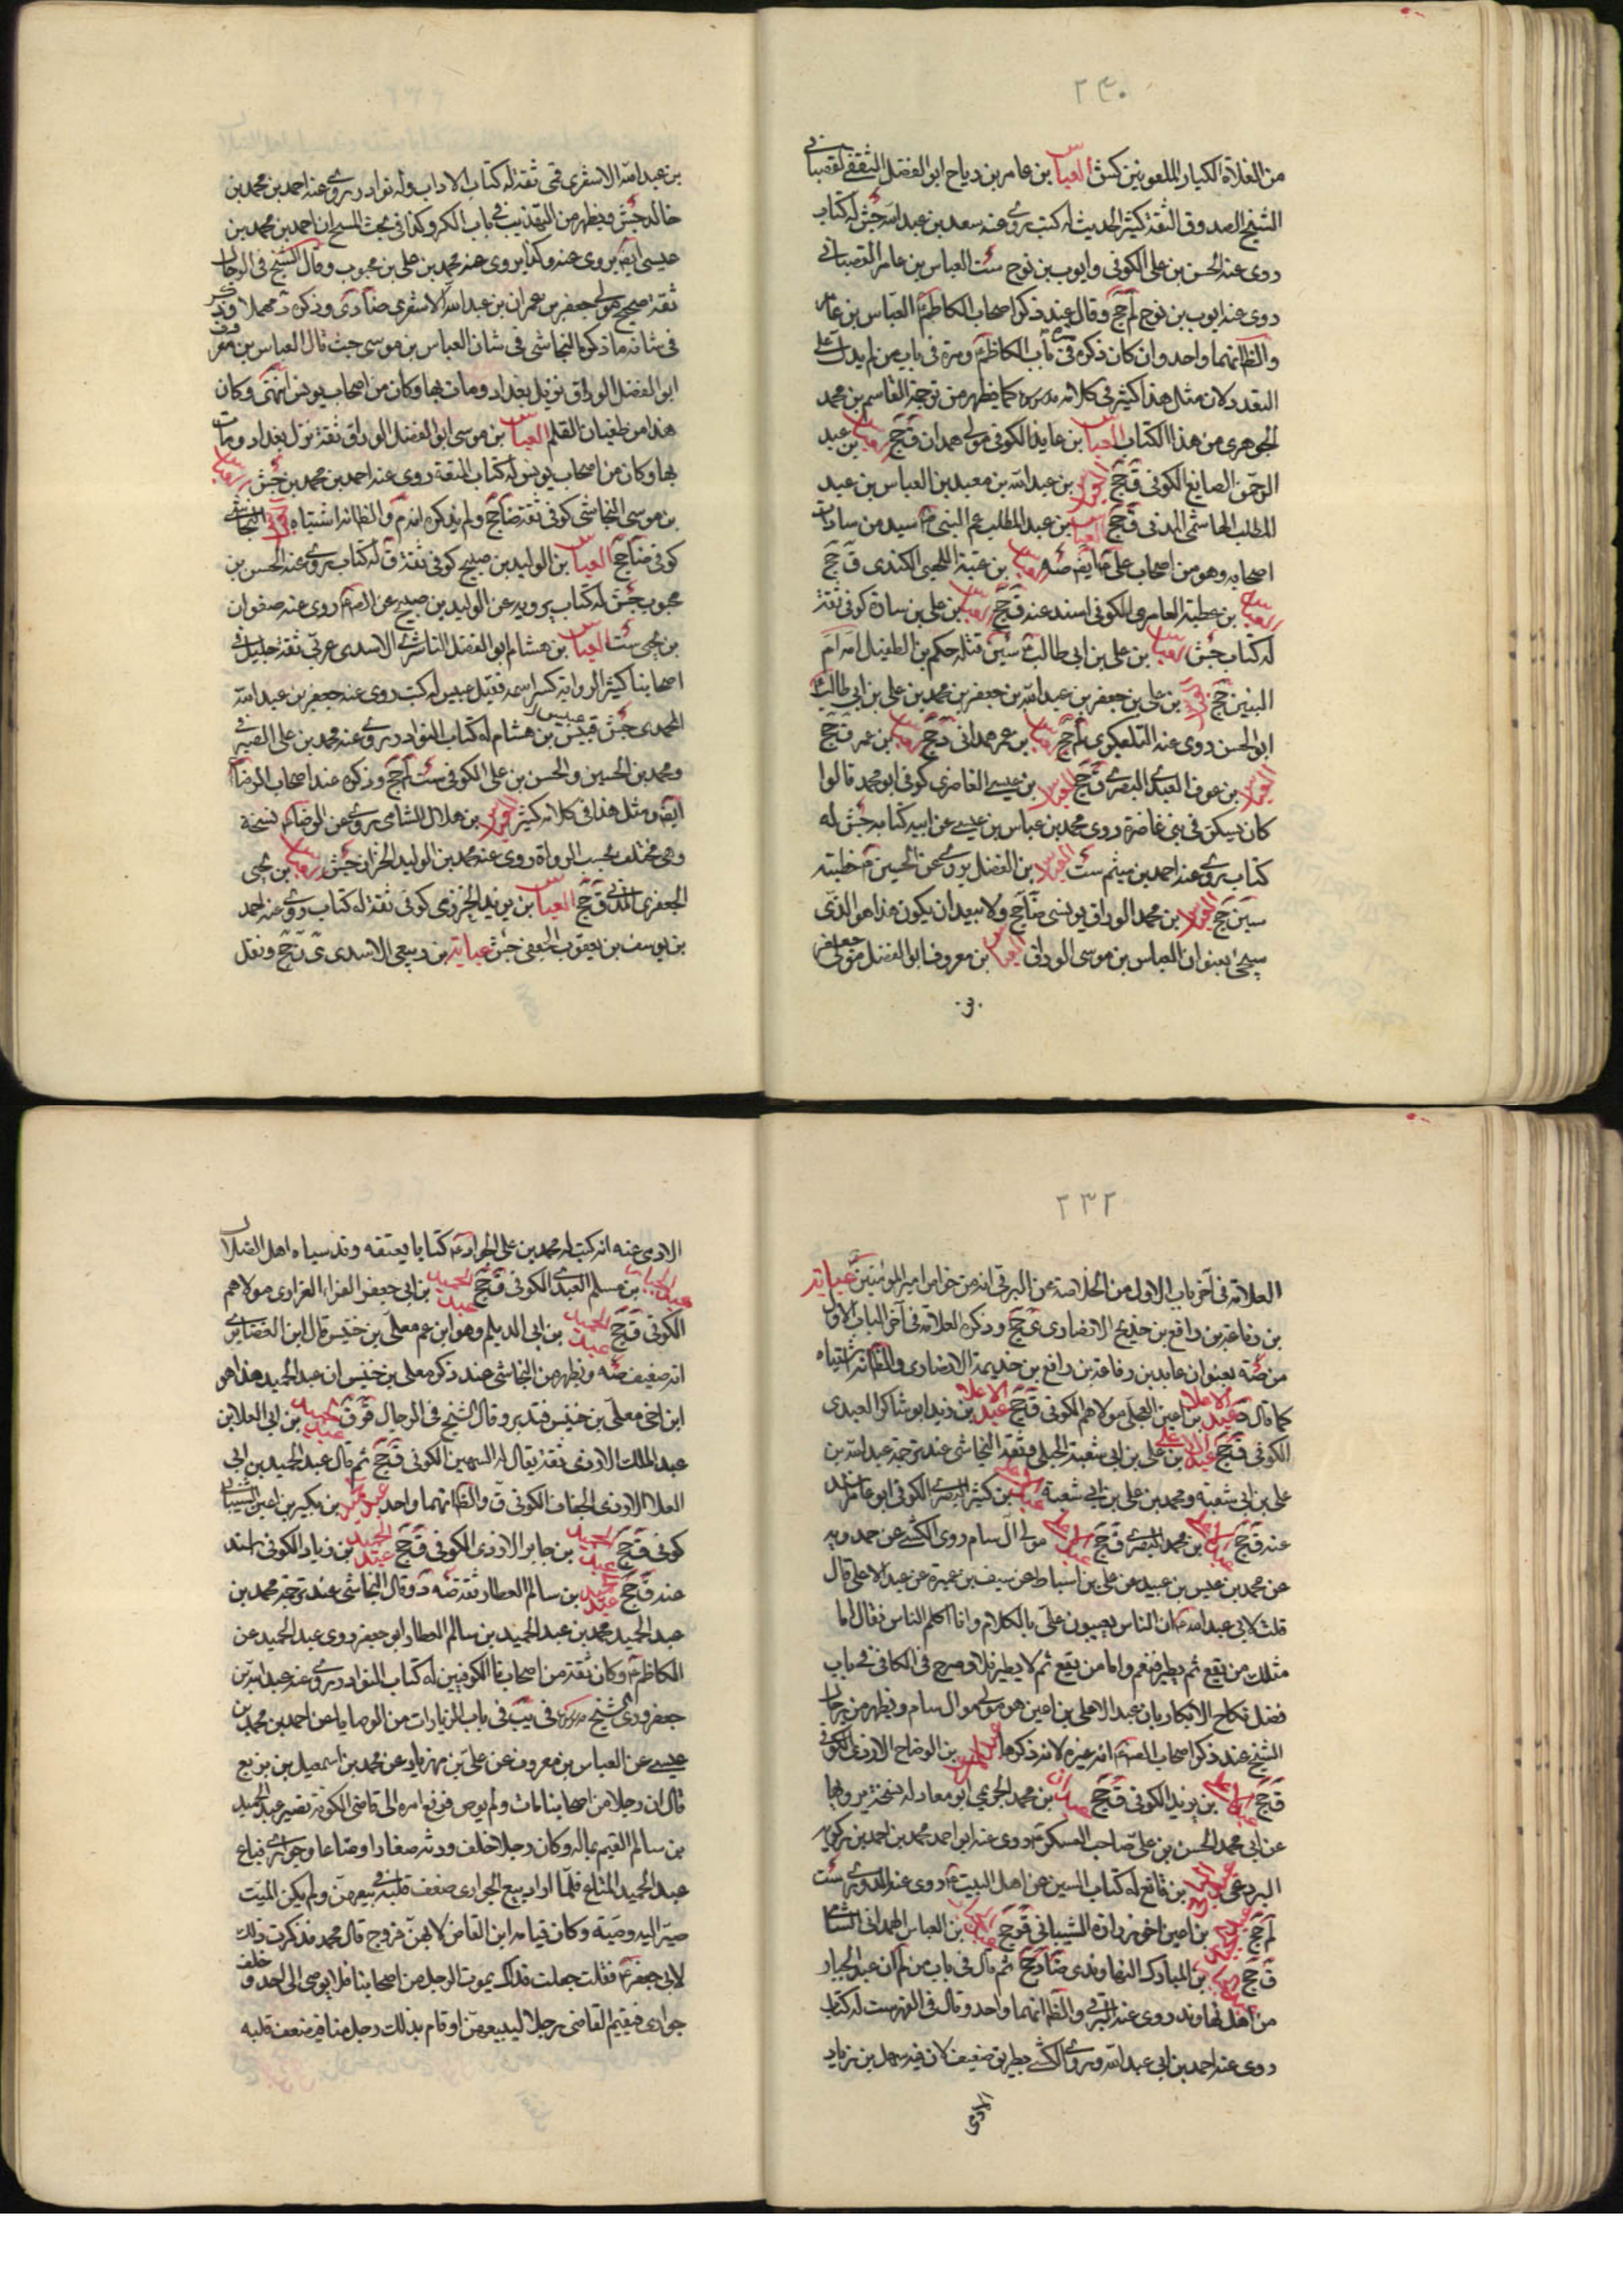 ٢٣٠
من الغلاة الكبار الملعونين كش العباس بن عامر بن رياح ابو الفضل الثقفي القصباني
الشيخ الصدوق الثقة كثير الحديث له كتب روى عنه سعد بن عبد الله جش له كتاب
روى عنه الحسن بن على الكوفى وايوب بن نوح ست العباس بن عامر القصبانى
روى عنه ايوب بن نوح لم جخ وقال عند ذكر اصحاب الكاظم العباس بن عامر
والظ انهما واحد وان كان ذكره فى باب الكاظم ومرة فى باب من لم يدل على
التعدد لان مثل هذا كثير فى كلامه كما يظهر من ترجمة القاسم بن محمد
الجوهرى من هذا الكتاب العباس بن عايذ الكوفى مولى همدان ق جخ العباس بن عبد
الرحمن الصايغ الكوفى ق جخ العباس بن عبد الله بن معبد بن العباس بن عبد
المطلب الهاشمى المدنى ق جخ العباس بن عبد المطلب عم النبى سيد من سادات
اصحابه وهو من اصحاب على ايضا صه العباس بن عتبة اللهبى الكندى ق جخ
العباس بن عطية العامرى الكوفى اسند عنه ق جخ العباس بن على بن سارة كوفى ثقة
له كتاب جش العباس بن على بن ابى طالب سين قتله حكيم بن الطفيل امه ام
البنين جخ العباس بن على بن جعفر بن عبد الله بن جعفر بن محمد بن على بن ابى طالب
ابو الحسن روى عنه التلعكبرى لم جخ العباس بن عمر همدانى ق جخ العباس بن عمر ق جخ
العباس بن عوف العبدى البصرى ق جخ العباس بن عيسى الغاضرى كوفى ابو محمد قالوا
كان يسكن فى بنى غاضرة روى محمد بن عباس بن عيسى عن ابيه كتابه جش له
كتاب روى عنه احمد بن ميثم ست العباس بن الفضل يروى عن الحسين خطبته
سين جخ العباس بن محمد الوراق يونسى ضا جخ ولا يبعد ان يكون هذا هو الذى
سيجئ بعنوان العباس بن موسى الوراق العباس بن معروف ابو الفضل مولى جعفر
بن
بن عبد الله الاشعرى قمى ثقة له كتاب الاداب وله نوادر روى عنه احمد بن محمد بن
خالد جش ويظهر من التهذيب فى باب الكر وكذا فى بحث المسح ان احمد بن محمد بن
عيسى ايضا يروى عنه وكذا يروى عنه محمد بن على بن محبوب وقال الشيخ فى الرجال
ثقة صحيح مولى جعفر بن عمران بن عبد الله الاشعرى ضا دى وذكره د مهملا وذكر
فى شانه ما ذكره النجاشى فى شان العباس بن موسى حيث قال العباس بن معروف
ابو الفضل الوراق نزيل بغداد ومات بها وكان من اصحاب يونس انتهى وكان
هذا من طغيان القلم العباس بن موسى ابو الفضل الوراق ثقة نزل بغداد ومات
بها وكان من اصحاب يونس له كتاب المتعة روى عنه احمد بن محمد بن جش العباس
بن موسى النجاشى كوفى ثقة ضا جخ ولم يذكره احد والظ انه اشتباه العباس النجاشى
كوفى ضا جخ العباس بن الوليد بن صبيح كوفى ثقة ق له كتاب روى عنه الحسن بن
محبوب جش له كتاب يرويه عن الوليد بن صبيح عن روى عنه صفوان
بن يحيى ست العباس بن هشام ابو الفضل الناشرى الاسدى عربى ثقة جليل فى
اصحابنا كثير الرواية كسر اسمه فقيل عبيس له كتب روى عنه جعفر بن عبد الله
المحمدى جش عبيس بن هشام له كتاب النوادر روى عنه محمد بن على الصيرفى
ومحمد بن الحسين والحسن بن على الكوفى ست لم جخ وذكره عند اصحاب الرضا
ايضا ومثل هذا فى كلامه كثير العباس بن هلال الشامى روى عن الرضا نسخة
وهى مختلف بحسب الرواة روى عنه محمد بن الوليد الخزاز جش العباس بن يحيى
الجعفرى المدنى ق جخ العباس بن يزيد الخرزى كوفى ثقة له كتاب روى عنه احمد
بن يوسف بن يعقوب الجعفى جش عباية بن ربيعى الاسدى ى ن جخ ونقل
٢٣٢
العلامة فى آخر باب الاول من الخلاصة عن البرقى انه من خواص امير المؤمنين عباية
بن رفاعة بن رافع بن خديج الانصارى ى جخ وذكره العلامة فى آخر الباب الاول
من صه بعنوان عابد بن رفاعة بن رافع بن خديمة الانصارى والظ انه اشتباه
كما قال د عبد الاعلى بن اعين العجلى مولاهم الكوفى ق جخ عبد الاعلى بن زيد ابو شاكر العبدى
الكوفى ق جخ عبد الاعلى بن على بن ابى شعبة الحلبى وثقه النجاشى عند ترجمة عبد الله بن
على بن ابى شعبة ومحمد بن على بن ابى شعبة عبد الاعلى بن كثير البصرى الكوفى ابو عامر اسند
عنه ق جخ عبد الاعلى بن محمد البصرى ق جخ عبد الاعلى مولى آل سام روى الكشى عن حمدويه
عن محمد بن عيسى بن عبيد عن على بن اسباط عن سيف بن عميرة عن عبد الاعلى قال
قلت لابى عبد الله ان الناس يعيبون على بالكلام وانا اكلم الناس فقال اما
مثلك من يقع ثم يطير فنعم واما من يقع ثم لا يطير فلا وصرح فى الكافى فى باب
فضل نكاح الابكار بان عبد الاعلى بن اعين هو مولى آل سام ويظهر من رجال
الشيخ عند ذكر اصحاب انه غيره لانه ذكرهما عبد الاعلى بن الوضاح الازدى الكوفى
ق جخ عبد الاعلى بن يزيد الكوفى ق جخ عبدان بن محمد الجويمى ابو معاد له نسخة يرويها
عن ابى محمد الحسن بن على صاحب العسكر روى عنه ابو احمد محمد بن احمد بن
البردعى بن قانع له كتاب السنن عن اهل البيت روى عنه الدورى ست
لم جخ عبد الجبار بن اعين اخو زرارة الشيبانى ق جخ عبد الجبار بن العباس الهمدانى الشبامى
ق جخ عبد الجبار بن المبارك النهاوندى ضا د جخ ثم قال فى باب من لم ان عبد الجبار
من اهل نهاوند روى عنه البرقى والظ انهما واحد وقال فى الفهرست له كتاب
روى عنه احمد بن ابى عبد الله وروى الكشى بطريق ضعيف لان فيه سهل بن زياد
الادمى
الادمى عنه انه كتب له محمد بن على الجواد كتابا يا يعتقه وقد سباه اهل الضلال
عبد الجبار بن مسلم العبدى الكوفى ق جخ عبد الحميد بن ابى جعفر الفراء الفزارى مولاهم
الكوفى ق جخ عبد الحميد بن ابى الديلم وهو ابن عم معلى بن خنيس قال ابن الغضايرى
انه ضعيف صه ويظهر من النجاشى عند ذكر معلى بن خنيس ان عبد الحميد هذا هو
ابن اخى معلى بن خنيس فتدبر وقال الشيخ فى الرجال ق ر ق عبد الحميد بن ابى العلا بن
عبد الملك الازدى ثقة يقال له السمين الكوفى ق جخ ثم قال عبد الحميد بن ابى
العلا الازدى الخفاف الكوفى ق والظ انهما واحد عبد الحميد بن بكير بن اعين الشيبانى
كوفى ق جخ عبد الحميد بن جابر الازدى الكوفى ق جخ عبد الحميد بن زياد الكوفى اسند
عنه ق جخ عبد الحميد بن سالم العطار ثقة صه د وقال النجاشى عند ترجمة محمد بن
عبد الحميد محمد بن عبد الحميد بن سالم العطار ابو جعفر روى عبد الحميد عن
الكاظم وكان ثقة من اصحابنا الكوفيين له كتاب النوادر روى عنه عبد الله بن
جعفر وروى الشيخ فى يب فى باب الزيارات من الوصايا عن احمد بن محمد بن
عيسى عن العباس بن معروف عن على بن مهزيار عن محمد بن اسمعيل بن بزيع
قال ان رجلا من اصحابنا مات ولم يوص فرفع امره الى قاضى الكوفة فصير عبد الحميد
بن سالم القيم بماله وكان رجلا خلف ورثة صغارا ومتاعا وجوارى فباع
عبد الحميد المتاع فلما اراد بيع الجوارى ضعف قلبه فى بيعهن ولم يكن الميت
صير اليه وصيته وكان قيامه بامر القاضى لانهن فروج قال محمد فذكرت ذلك
لابى جعفر فقلت جعلت فداك يموت الرجل من اصحابنا فلا يوصى الى احد و خلف
جوارى فيقيم القاضى رجلا ليبيعهن او قام بذلك رجل منا فيضعف قلبه